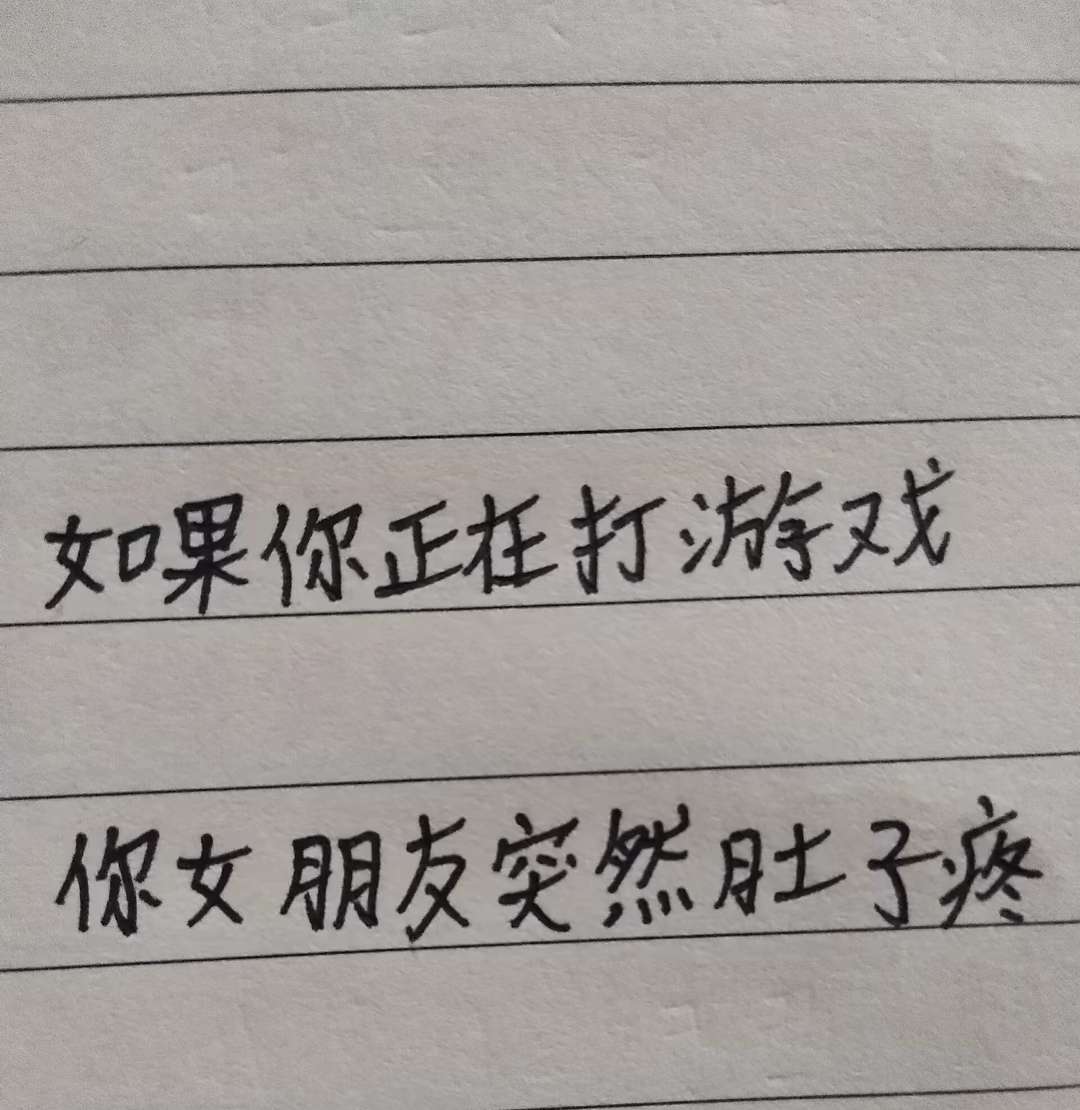 如果你正在打游戏
你女朋友突然肚子疼